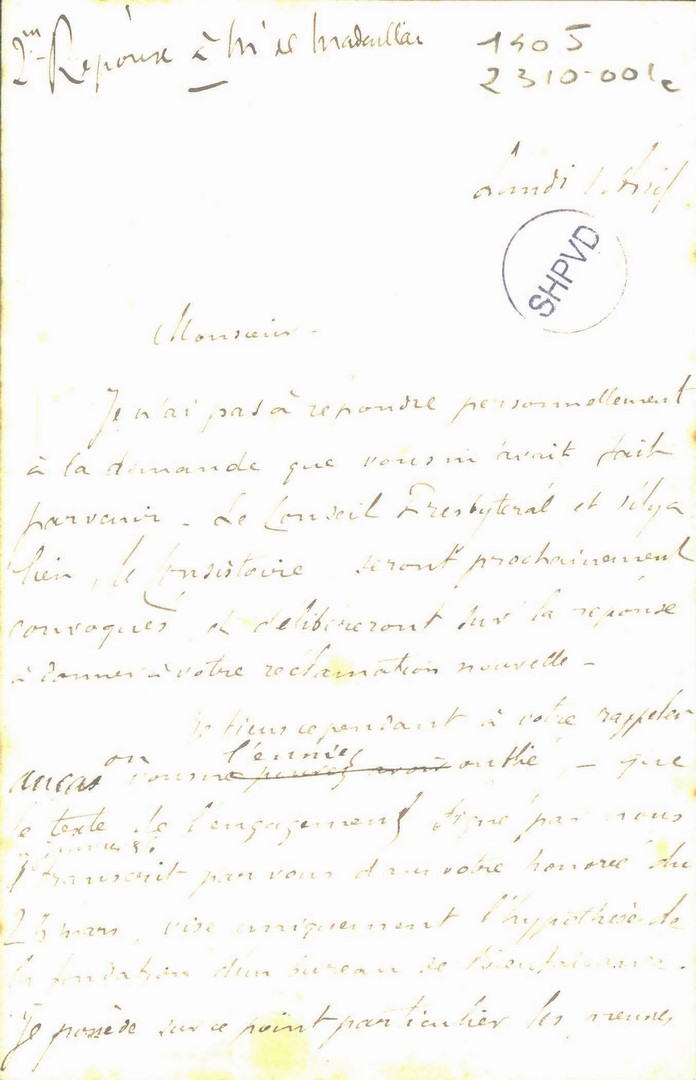 2me Réponse à Mr de Madaillan
1905
2310-001c
Lundi 1 Avril
SHPVD
Monsieur -
Je n'ai pas à répondre personnellement
à la demande que vous m'avait fait
parvenir - Le Conseil Presbytéral et s'il y a
lieu, le Consistoire seront prochainement
convoqués et délibèreront sur la réponse
à donner à votre réclamation nouvelle -
Je tiens cependant à votre rappeler
au cas où vous l'eussiez
ne pouvez avoir oublié, - que
le texte de l'engagement signé par nous
transcrit par vous dans votre honorée du
23 mars, vise uniquement l'hypothèse de
la fondation d'un bureau de Bienfaisance.
Je possède sur ce point particulier les